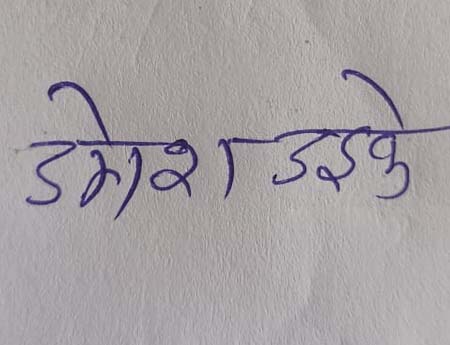 उमेश उइके